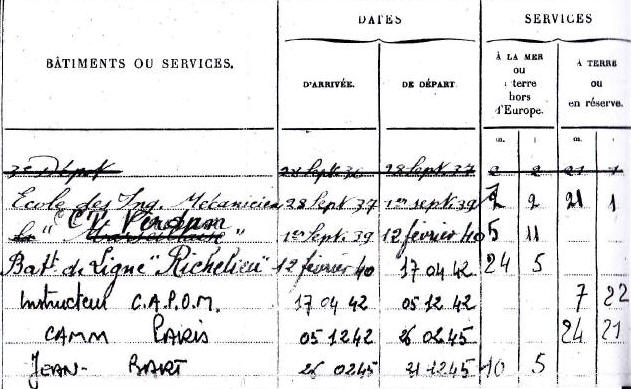 DATES SERVICES
BÂTIMENTS OU SERVICES. D'ARRIVÉE. DE DÉPART À LA MER ou terre hors d'Europe. A TERRE ou en réserve.
m. j m. j
3e Dépôt 28 Sept 36 28 Sept. 37 2 2 21 1
Ecole des Ing. Mécanicien 28 Sept 37 1er sept 39 2 2 21 1
C.T. Verdun
" Marseillaise " 1er Sept. 39 12 février 40 5 11
Batt. de Ligne "Richelieu" 12 février 40 17 04 42 24 5
Instructeur C.A.P.O.M. 17 04 42 05 12 42 7 22
CAMM PARIS 05 12 42 26 02 45 24 21
JEAN-BART 26 02 45 31 12 45 10 5